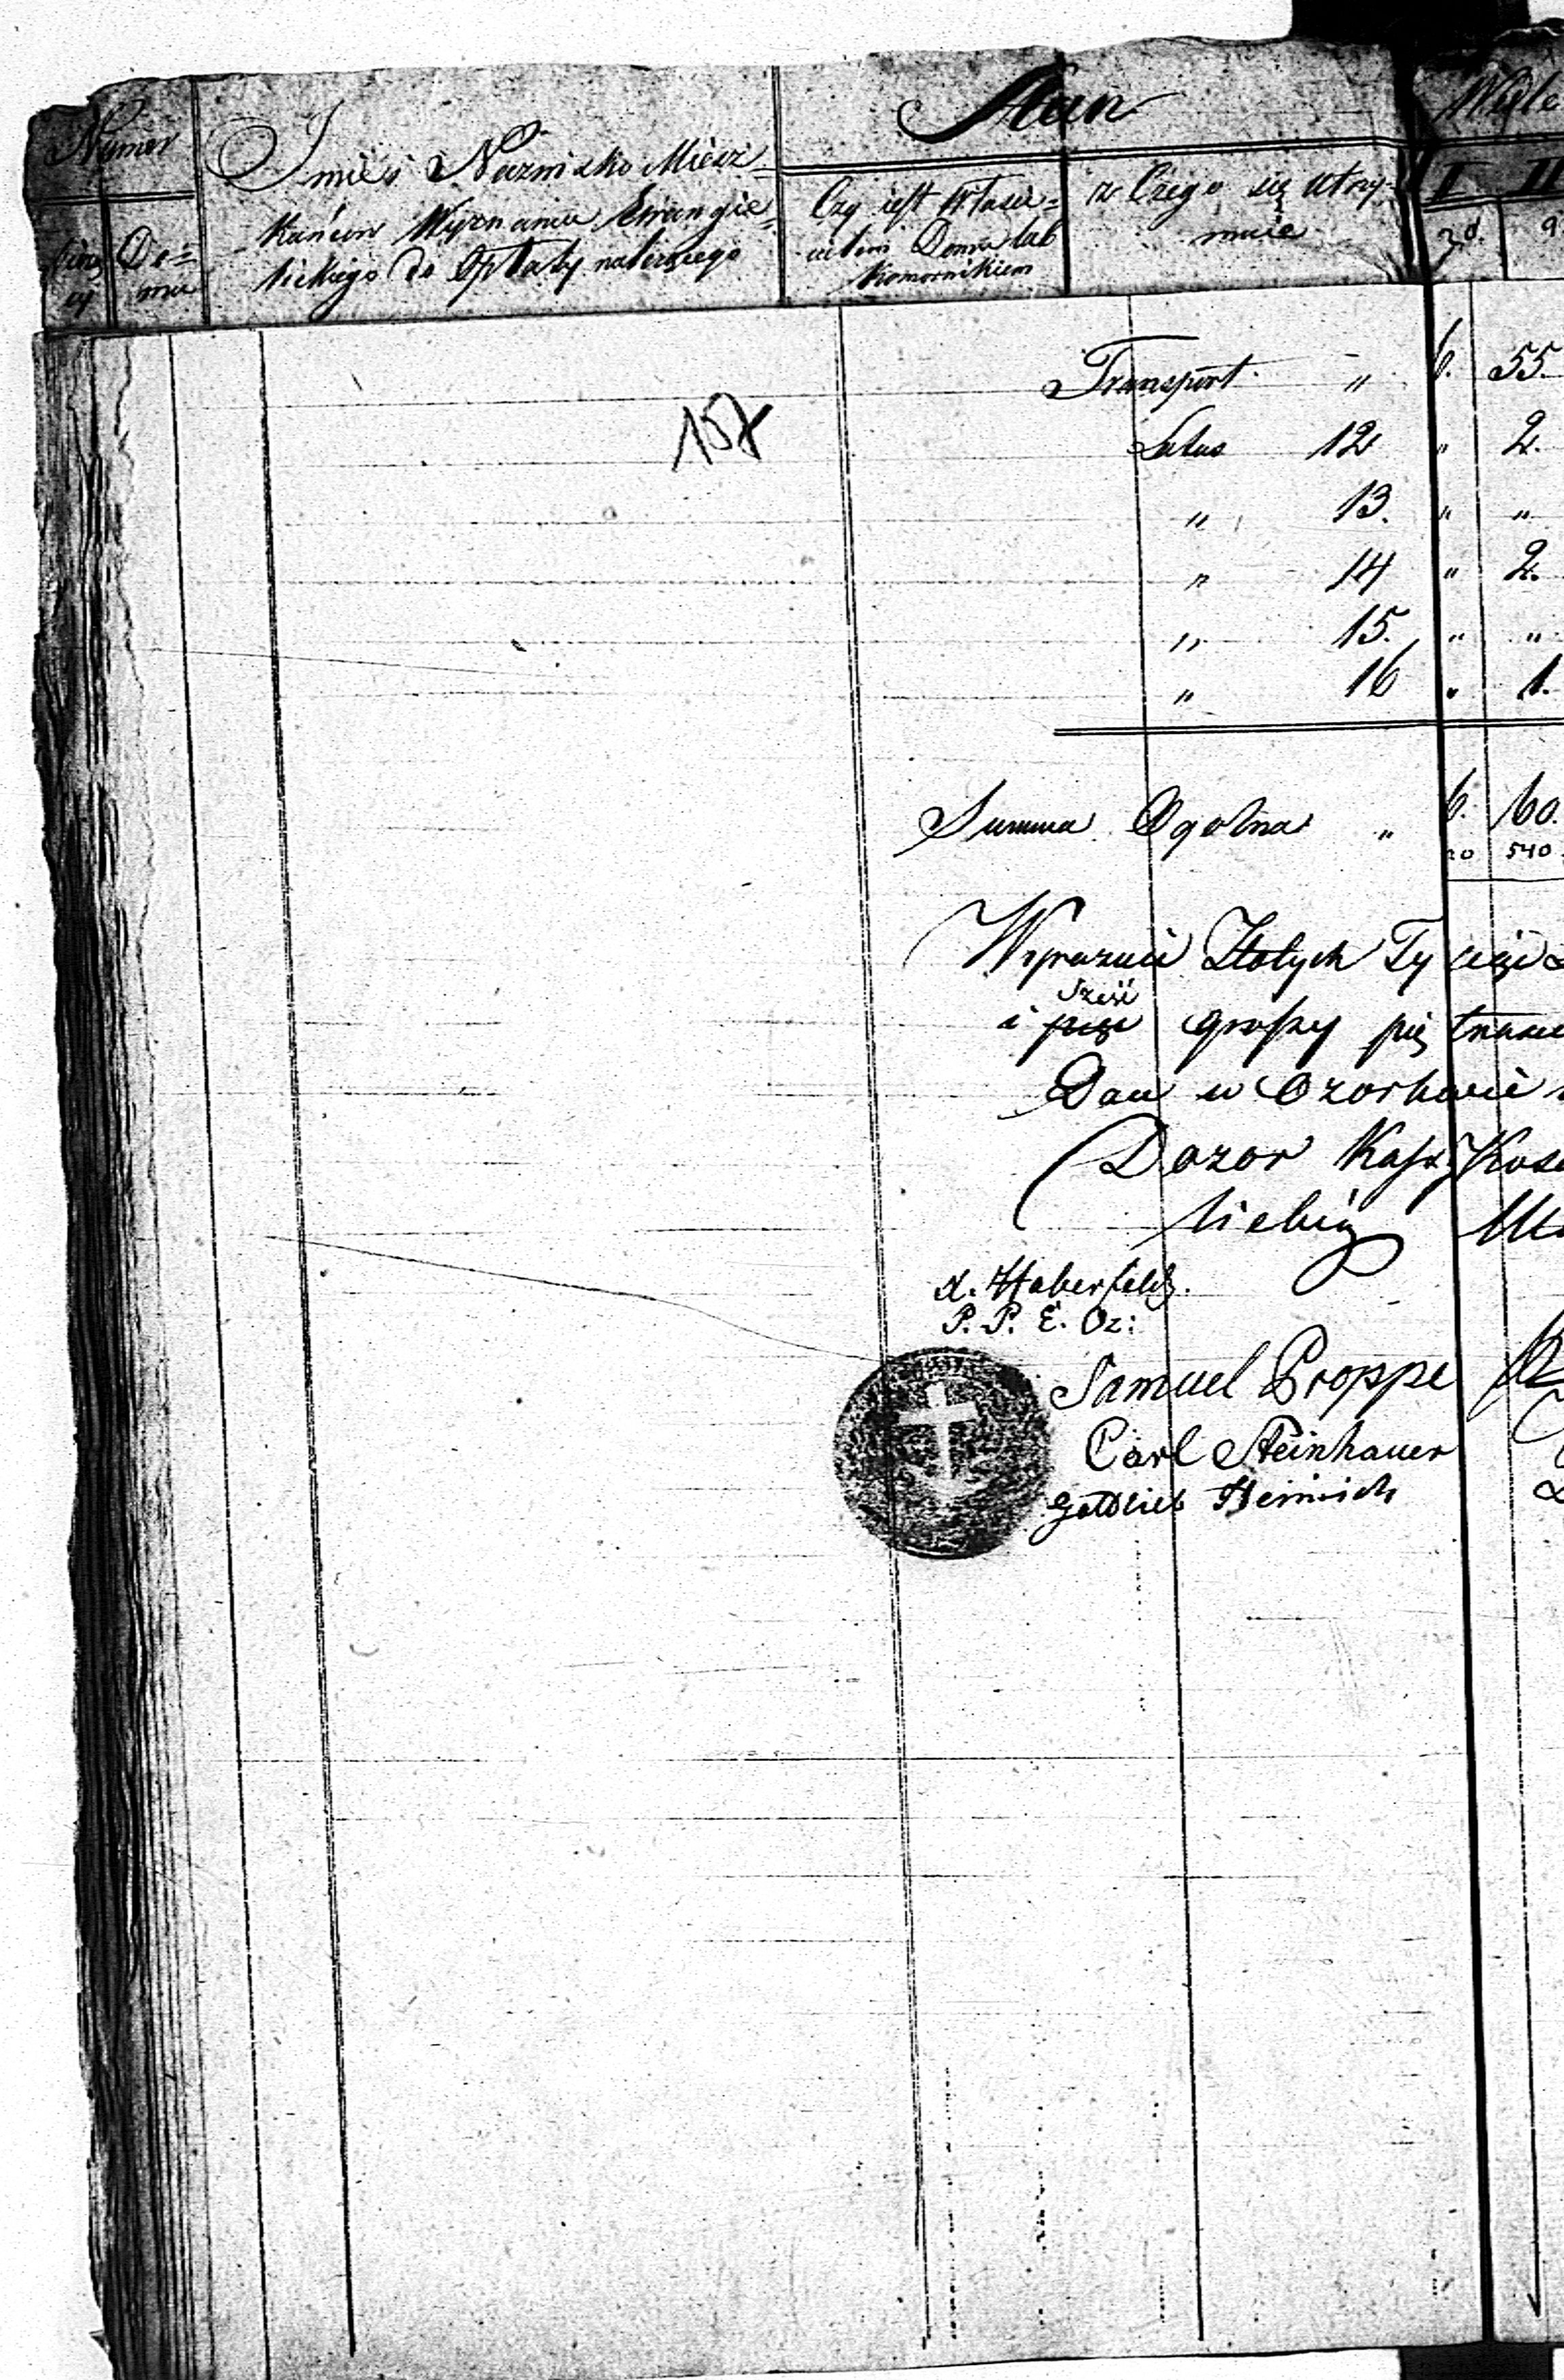 Numer
Do=
mu
Imie i Nazwisko Miesz=
kańcow Wyznania Ewangie=
lickiego do Opłaty należącego
Stan
Czy iest Właści=
cielem Domu lub
Komornikiem
z Czego się utrzy-
muie
I II
Transport " 6. 55.
Latus 12 " 2.
" 13. " "
" 14 " 2.
" 15. " "
" 16 " 1.
157
Summa Ogolna " 6. 60.
540
Wyraznie Złotych Ty
Sześć
i groszy pię
Dan w Ozorkowie
Dozor
A. Haberfeld.
P. P. E. Oz:
Samuel Proppe
Carl Steinhauer
Gottlieb Heinrich